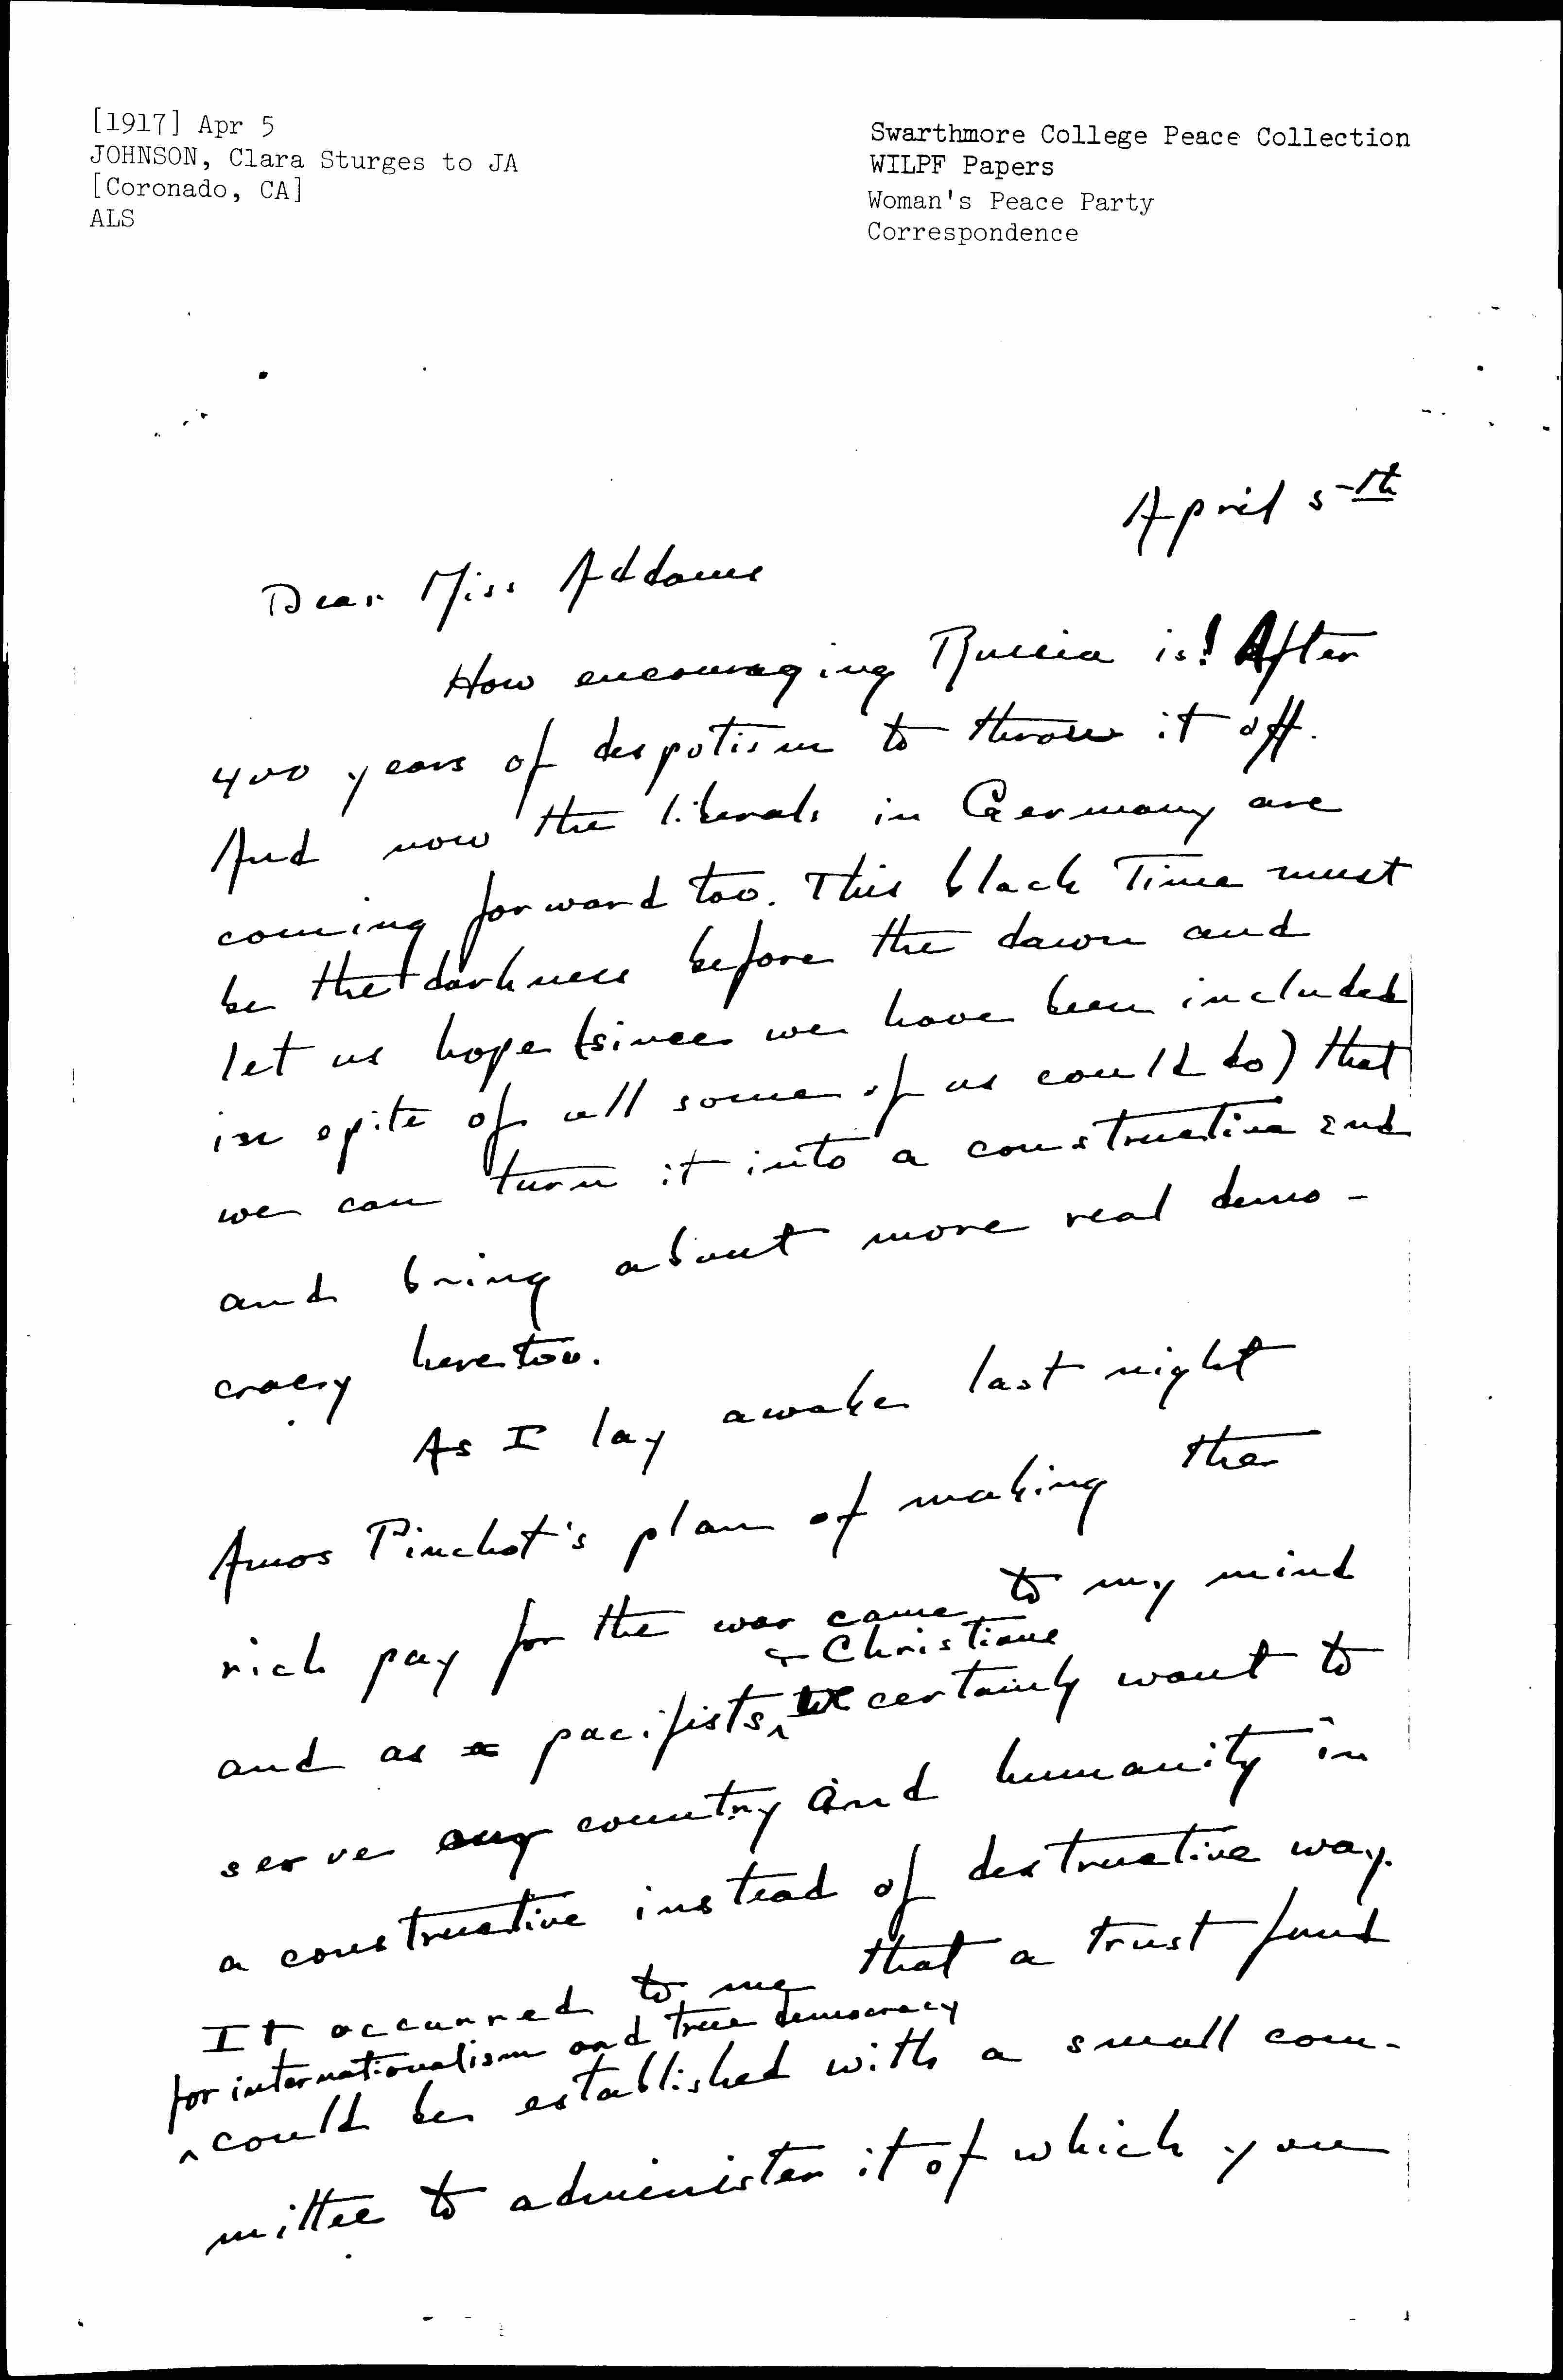 [1917] Apr 5
JOHNSON, Clara Sturges to JA
[Coronado, CA]
ALS
Swarthmore College Peace Collection
WILPF Papers
Woman's Peace Party
Correspondence
April 5th
Dear Miss Addams
How encouraging Russia is! After
400 years of despotism to throw it off.
And now the liberals in Germany are
coming forward too. This black Time must
be the darkness before the dawn and
let us hope (since we have been included
in spite of all some of us could do) that
we can turn it into a constructive end
and bring about more real demo-
cracy here too.
As I lay awake last night
Amos Pinchot's plan of making the
rich pay for the war came to my mind
& Christians
and as a pacifists, we certainly want to
serve our country and humanity in
a constructive instead of destructive way.
It occurred to me that a trust fund
for internationalism and true democracy
^ could be established with a small com-
mittee to administer it of which you